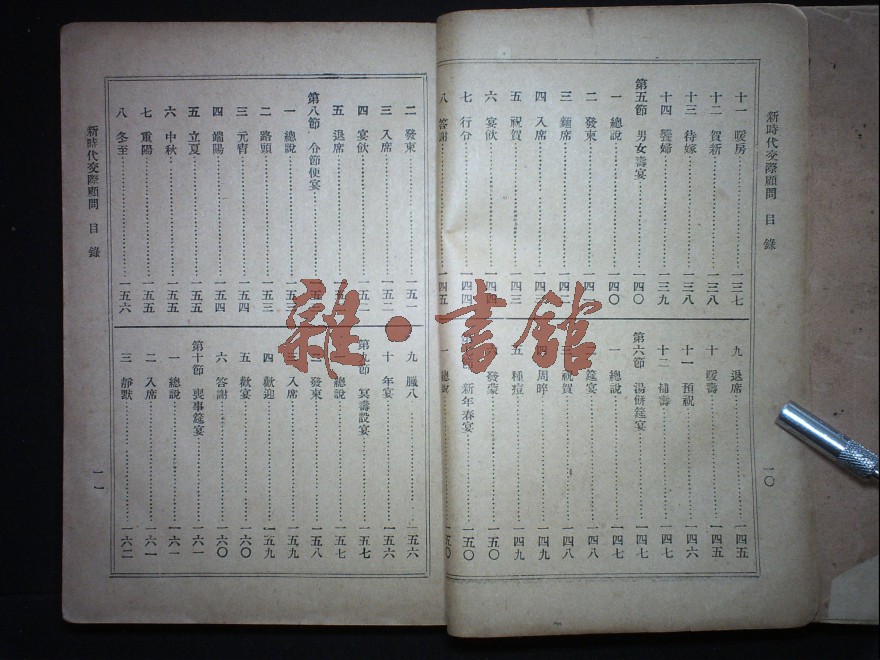 新時代交際顧問 目錄 一〇
十一 暖房 一三七
十二 賀新 一三八
十三 待嫁 一三八
十四 饗婦 一三九
第五節 男女壽宴 一四〇
一 總說 一四〇
二 發柬 一四
三 麵席 一四二
四 入席 一四
五 祝賀 一四三
六 宴飲 一四四
七 行令 一四四
八 答謝 一四五
九 退席 一四五
十 暖壽 一四五
十一 預祝 一四六
十二 補壽 一四七
第六節 湯餅筵宴 一四七
一 總說 一四七
筵宴 一四八
三 祝賀 一四八
四 周晬 一四九
五 種痘 一四九
發蒙 一五〇
節 新年春宴 一五〇
一 總說 一五〇
二 發柬 一五一
三 入席 一五
四 宴飲 一五二
五 退席 一五
第八節 分節便宴 一五
一 總說 一五三
二 路頭 一五三
三 元宵 一五四
四 端陽 一五四
五 立夏 一五五
六 中秋 一五五
七 重陽 一五五
八 冬至 一五六
九 臘八 一五六
十 年宴 一五六
第九節 冥壽設宴 一五七
一 總說 一五七
二 發柬 一五八
三 入席 一五九
四 歡迎 一五九
五 歡宴 一六〇
六 答謝 一六〇
第十節 喪事筵宴 一六一
一 總說 一六一
二 入席 一六一
三 靜默 一六二
新時代交際顧問 目錄 一一
雜·書館